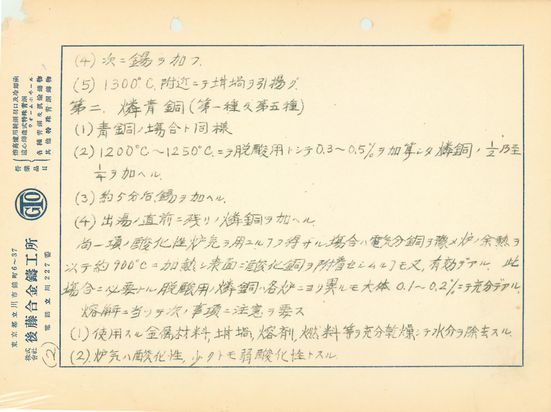 (4) 次ニ錫ヲ加フ
(5) 1300°C.附近ニテ坩堝ヲ引揚グ.
第二. 燐青銅(第一種及第五種)
(1) 青銅ノ場合ト同様
(2) 1200°C〜1250°C.ニテ脱酸用トシテ0.3〜0.5%ヲ加算シタ燐銅ノ1/2乃至
1/4ヲ加ヘル.
(3) 約5分后錫ヲ加ヘル.
(4) 出湯ノ直前ニ残リノ燐銅ヲ加ヘル.
尚一項ノ酸化性炉気ヲ用ユル得ザル場合ハ電気分銅ヲ炉ノ余熱ヲ
以テ約900°Cニ加熱シ表面ニ酸化銅ヲ附着セシムルモ又有効デアル. 此
場合ニ必要ナル脱酸用燐銅ハ各炉ニヨリ異ルモ大体0.1〜0.2%ニテ充分デアル.
熔解ニ当リテ次ノ事項ニ注意ヲ要ス
(1) 使用スル金属材料,坩堝,熔剤,燃料等ヲ充分乾燥シテ水分ヲ除去スル.
(2) 炉気ハ酸化性,少クトモ弱酸化性トスル.
営業品目
各種青銅及黄銅鋳物
其他特殊青銅鋳物
GTO
株式会社 後藤合金鋳工所
東京都立川市錦町6〜37
電話立川227番
(2)